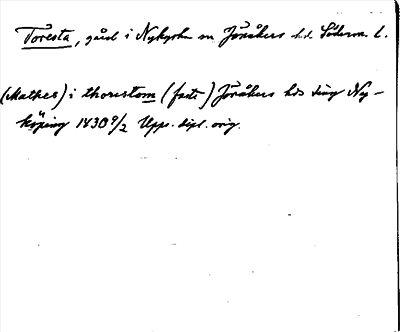 Toresta, gård i Nykyrka sn Jönåkers hd. Söderm. l.
(Matkes) i thorestom (fasti) Jönåkers hds ting Ny-
köping 1430 9/2 Upps. dipl. orig.